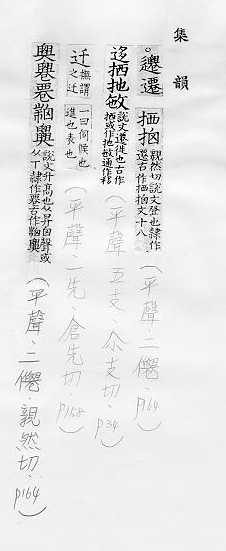 集韻
。𨙵遷 拪𢮄 親然切說文登也隸作遷古作拪𢮄文十八（平聲．二僊．p164）
迻拪扡敏 說文遷徙也古作拪或作扡敏通作移（平聲．五支．余支切．p34）
迁 撫謂之迁 一曰伺候也進也表也（平聲．二先．倉先切．p158）
說文升高也从舁囟聲或从卩隸作䙴古作（平聲．二僊．親然切．p164）